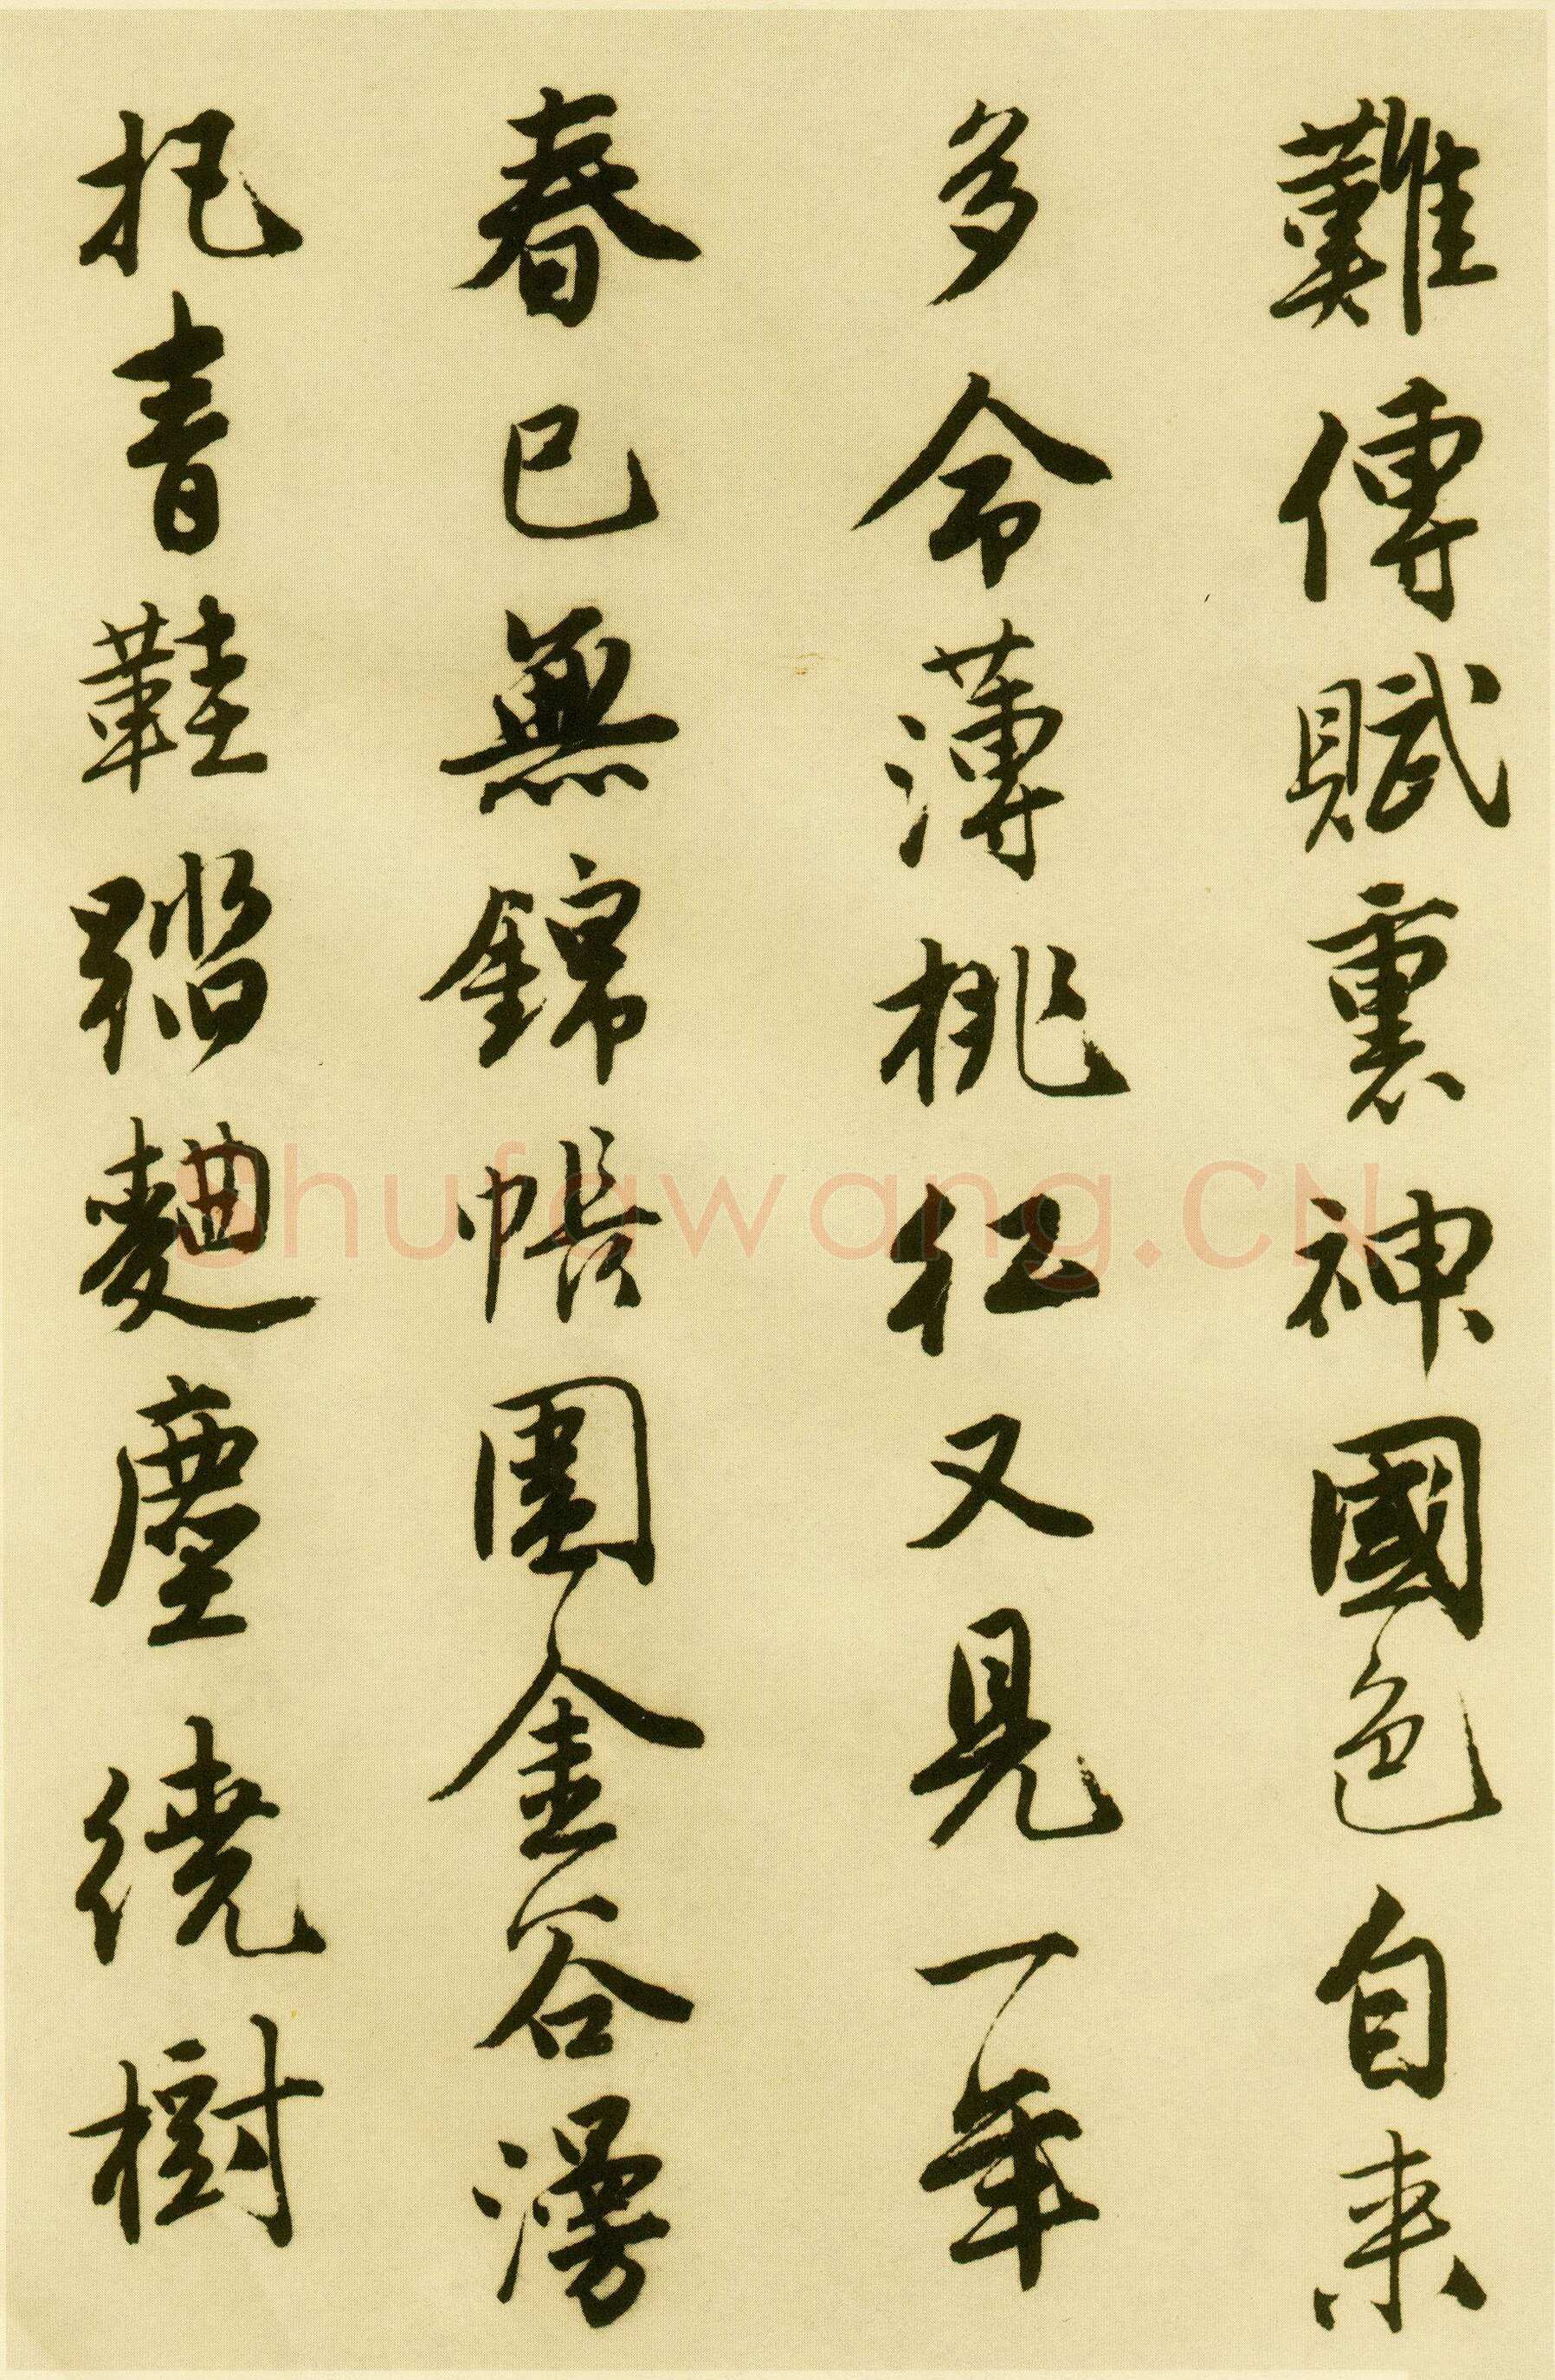 難傳賦裏神國色自来
多命薄桃紅又見一年
春已無錦帳圍金谷漫
把青鞋踏麯塵繞樹
Shufawang.CN